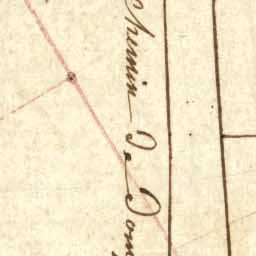 Chemin De Dom